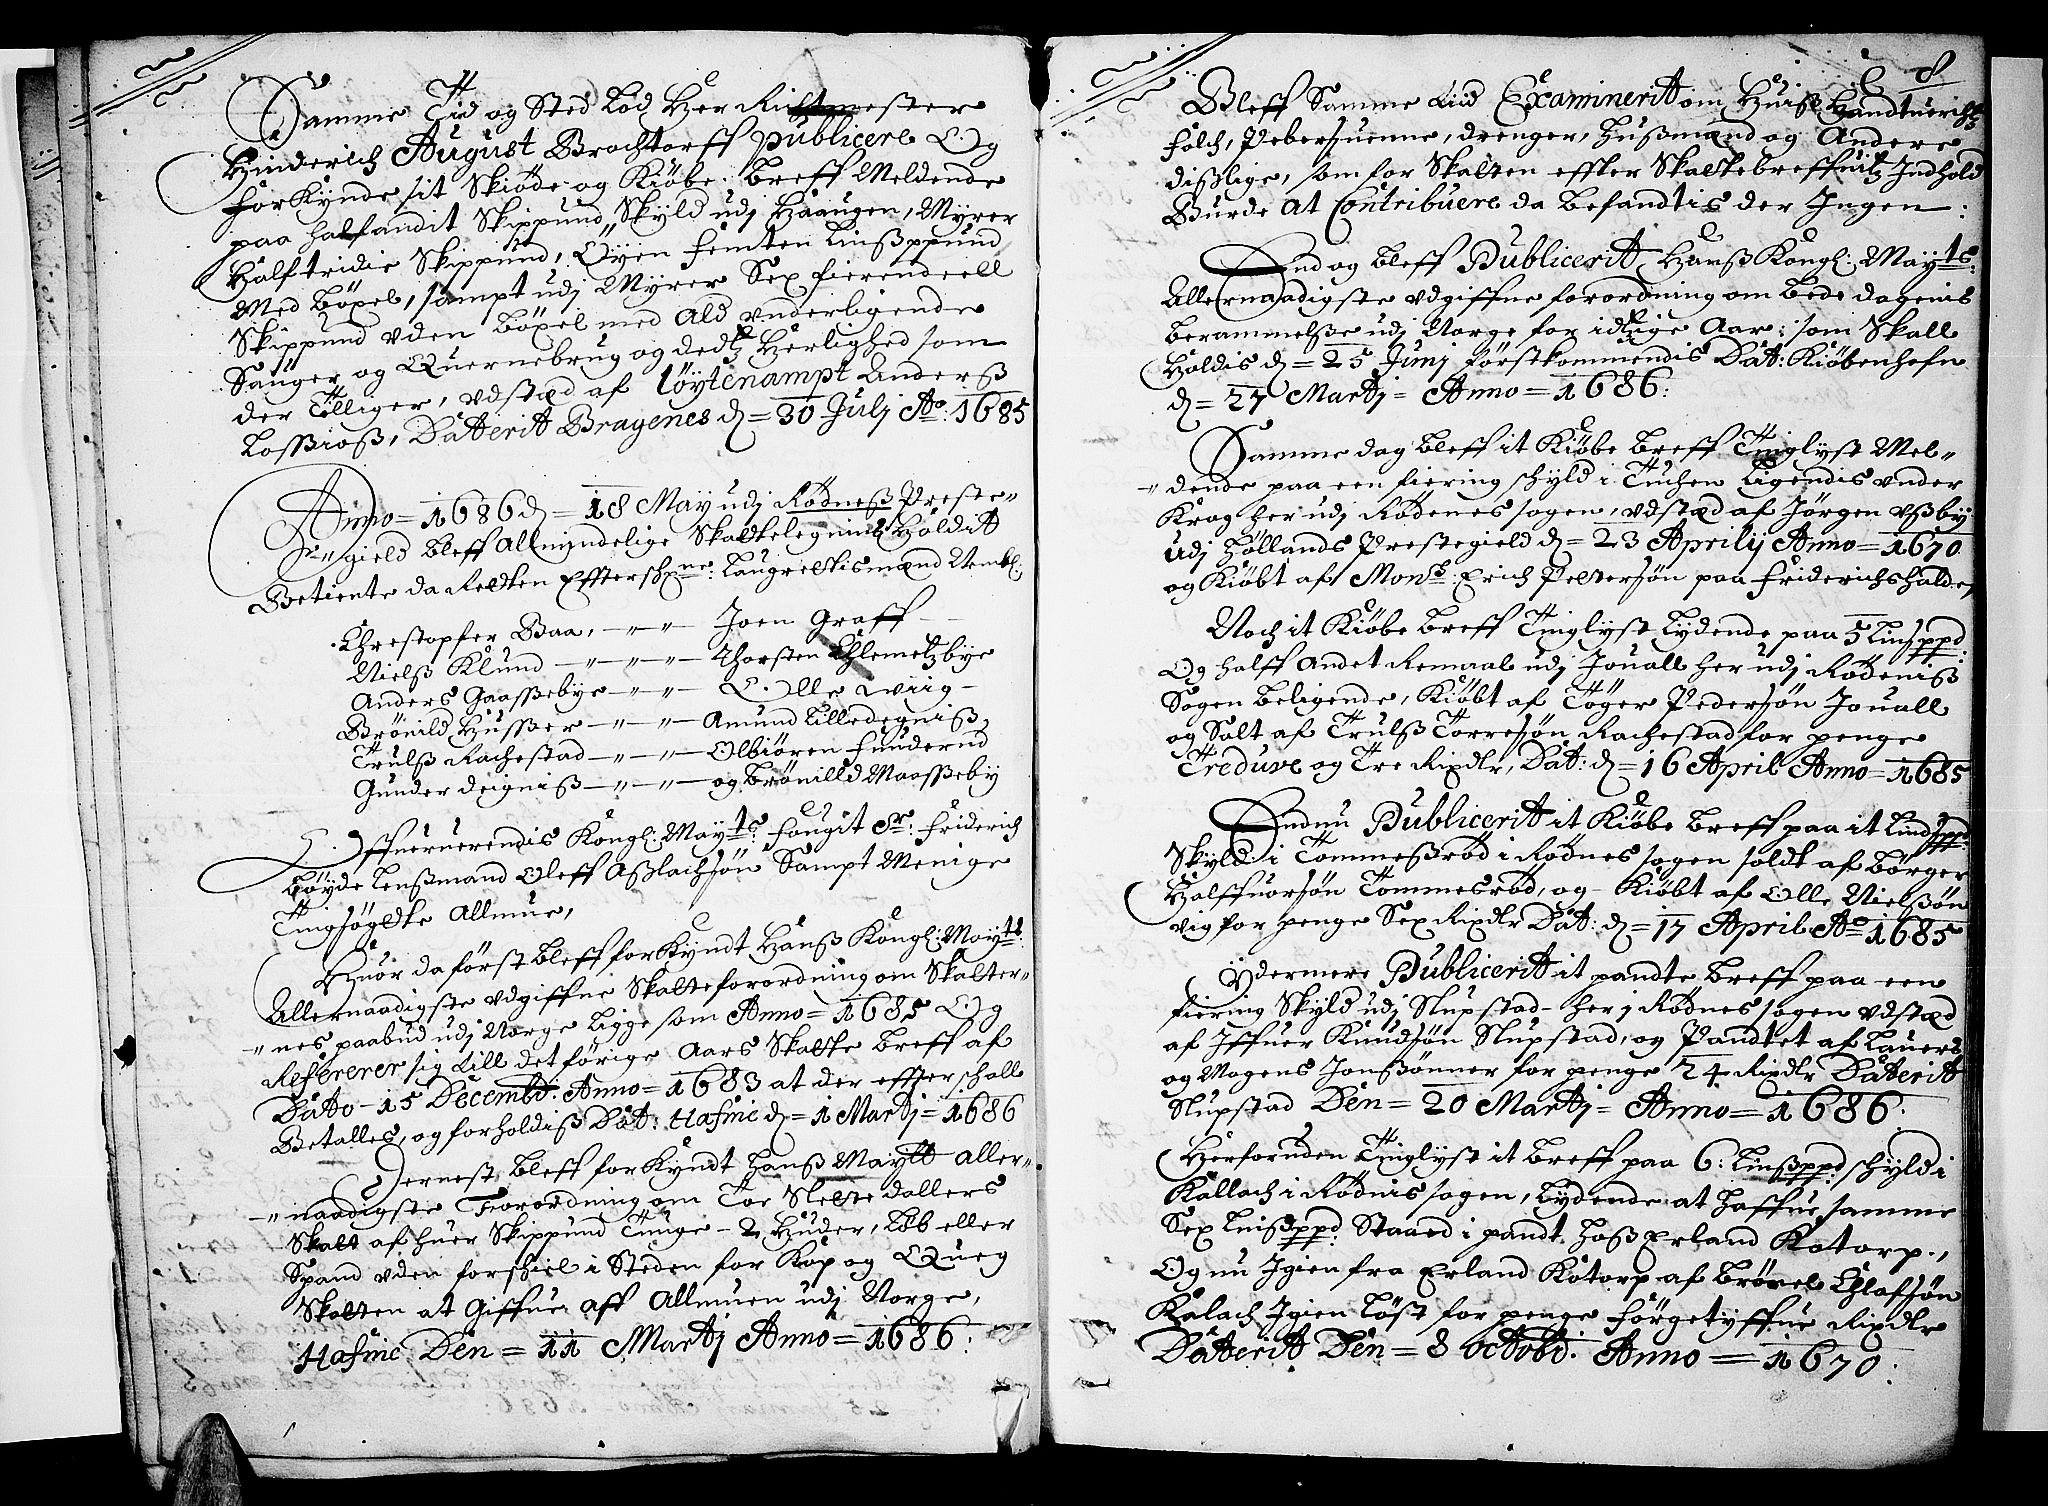 Samme Tid og Sted lod Her Richtmester
Hinderich August Brochtorff publicere Og
forKynde sit Skiøde og Kiøbe Breff Meldende
paa halfandit Skippund Skyld udj Haaugen, Myrer
Halftridie Skippund, Øyen femten Linßppund
Med Böxel, sampt udj Myrer Sex fierendeell
Skippund vden böxel med Ald vnderligende
Sauger og Quernebrug og dedtz Herlighed som
der Tilliger, vdstæd af löytenampt Anderß
Loßsioß, Datterit Bragenes d = 30 Julj Ao: 1685
Anno = 1686 d = 18 May udj Rødneß Preste„
„gield bleff Allmindelige Skattelegning Holdit
Betiente da Retten Effterschne: Laugrettismænd Nembl:
Christopfer Baa, -„-„- Joen Graff
Nielß Klund -„-„-„- Thorsten Chlemetzbye
Anders Gaasßebye -„-„- Olle Wiig
Brönild Hußser -„-„- Amund Lilledegniß,
Trulß Rachestad -„-„- Olbiören Funderud
Gunder deigniß -„-„- og brönilld Maaßseby
Offueruerendis Kongl: Mayts: fougit Sr: friderich
Böyde Lenßmand Oleff Aßlachsøn Sampt Menige
Tingsøgdte Allmue,
Huor da først bleff forKyndt Hanß Kongl: Mayts:
Allernaadigste vdgiffne Skatteforordning om Skatter„
„nes paabud udj Norge ligge som Anno = 1685 Og
Refererer sig till det førige Aars Skatte breff af
Dato - 15 Decembr. Anno = 1683 at der effter schall
Betalles, og forholdiß Dat: Hafnie d = 1 Martj = 1686
Dernest, bleff forKyndt hanß Maytt aller„
„naadigste Forordning om Toe Slette dallers
Skatt af huer Skippund Tunge - 2 Huder, Løb eller
Spand vden forskiel i Steden for Kop og Queg
Skatten at Giffue aff Allmuen udj Norge,
Hafnie Den = 11 Martj Anno = 1686:
8
Bleff Samme tiid Examinerit om Huis Handtuerchs
folch, Pebersuenne, drenger, Hußmænd og Andere
dißlige, som for Skatten effter Skattebreffuitz Indhold
Burde At Contribuere da befandtis der Ingen:
End og bleff Publicerit Hanß Kongl: Mayts:
Allernaadigste vdgiffne forordning om bede dagenis
berammelße udj Norge for idtzige Aar: som Skall
Holdis d = 25 Junj førstkommendis Dat: Kiøbenhefn
d = 27 Martj = Anno = 1686:
Samme dag bleff it Kiøbe breff Tinglyst Mel„
„dende paa een fiering schyld i Tuchen Ligendis vnder
Krog her udj Rødenes sogen, vdstæd af Jørgen vßby
udj Høllands Prestegield d = 23 Aprilij Anno = 1670
og Kiøbt af Monsr. Erich Pettersøn paa friderichshalde,
Noch it Kiøbe breff Tinglyst Lydende paa 5 Linßppd:
Og halff Andet Remaal udj Jouall her udj Rødeniß
Sogen beligende, Kiøbt af Töger Pedersøn Jouall
og Solt af Trulß Torresøn Rachestad for penge
Treduve og Tre Rixdlr, Dat: d = 16 April Anno = 1685
Endnu Publicerit it Kiøbe breff paa it Lindßppd:
Skyld i Tommeßrød i Rødnes sogen soldt af Børger
Halffuorsøn Tommesrød, og Kiøbt af Olle Nielßøn
vig for penge Sex Rixdlr Dat: d = 17 April Ao 1685
Ydermere Publicerit it pandte breff paa een
fiering Skyld udj Slupstad her j Rødnes sogen vdstæd
af Iffuer Knudsøn Slupstad, og Pandtet af Lauers
og Mogens Jonßønner for penge 24 Rixdlr Daterit
Slupstad Den = 20 Martj = Anno = 1686:
Herforuden Tinglyst it breff paa 6: Linßppd: schyld i
Kallach i Rødnis sogen, lydende at haffue samme
Sex Linßppd: Staaed i pandt hoß Erland Kotorp.,
Og nu Igien fra Erland Kotorp af brönel Olafsøn
Kalach Igien løst for penge førgetyffue Rixdlr
Datterit Den = 8 octobr. Anno = 1670: